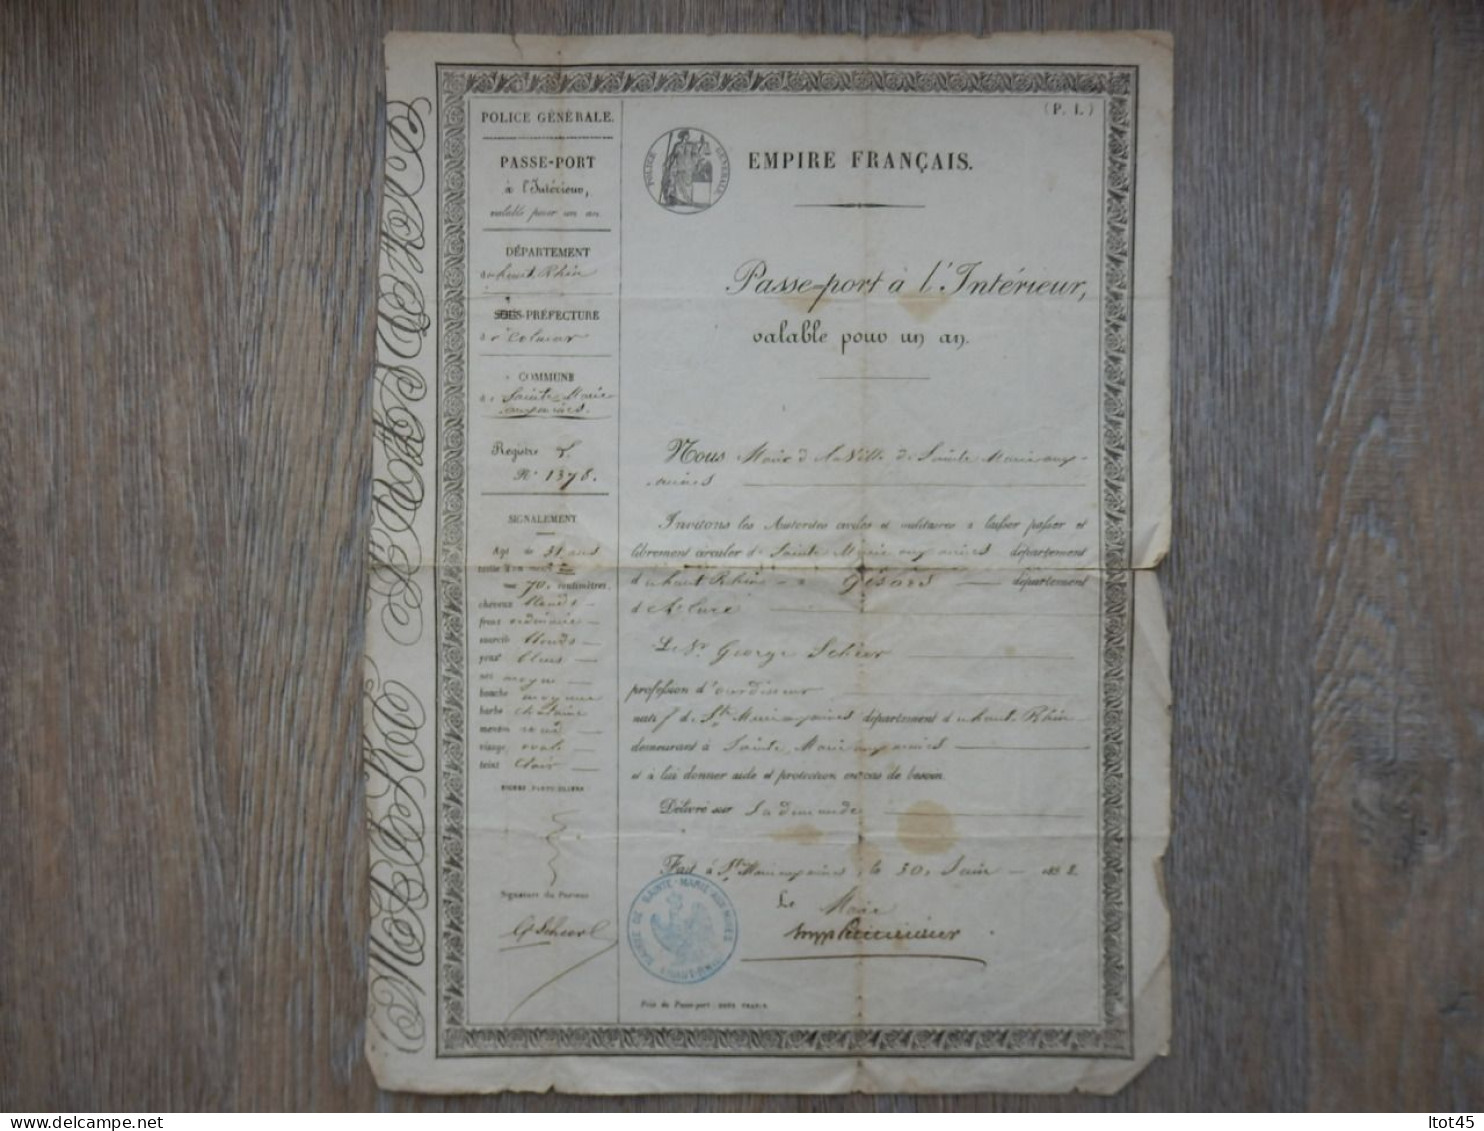 POLICE GÉNÉRALE.
PASSE-PORT
à l'Intérieur,
valable pour un an
DÉPARTEMENT
haut Rhin
SOUS-PRÉFECTURE
Colmar
COMMUNE
Sainte Marie
auxmines.
Registre
N° 1376.
SIGNALEMENT
Agé de 31 ans
taille d'un mètre
70. centimètres
cheveux blonds
front ordinaire
sourcils blonds
yeux bleus
nez moyen
bouche moyenne
barbe châtaine
menton rond
visage ovale
teint clair
SIGNES PARTICULIERS
Signature du Porteur
G Scheer
POLICE GENERALE
(P. I.)
EMPIRE FRANÇAIS.
Passe-port à l'Intérieur,
valable pour un an.
Nous Maire de la Ville de Sainte Marie aux
mines
Invitons les Autorités civiles et militaires à laisser passer et
librement circuler de Sainte Marie auxmines département
d haut Rhin à Gisors département
d
Le Sr. George Scheer
profession d'ourdisseur
natif de Ste Marie auxmines département d haut Rhin
demeurant à Sainte Marie auxmines
et à lui donner aide et protection en cas de besoin.
Délivré sur sa demande
Fait à Ste Marie auxmines, le 30. Juin 185
Le Maire
MAIRIE DE SAINTE-MARIE-AUX-MINES
(HAUT-RHIN)
Prix du Passe-port : DEUX FRANCS.
ltot45